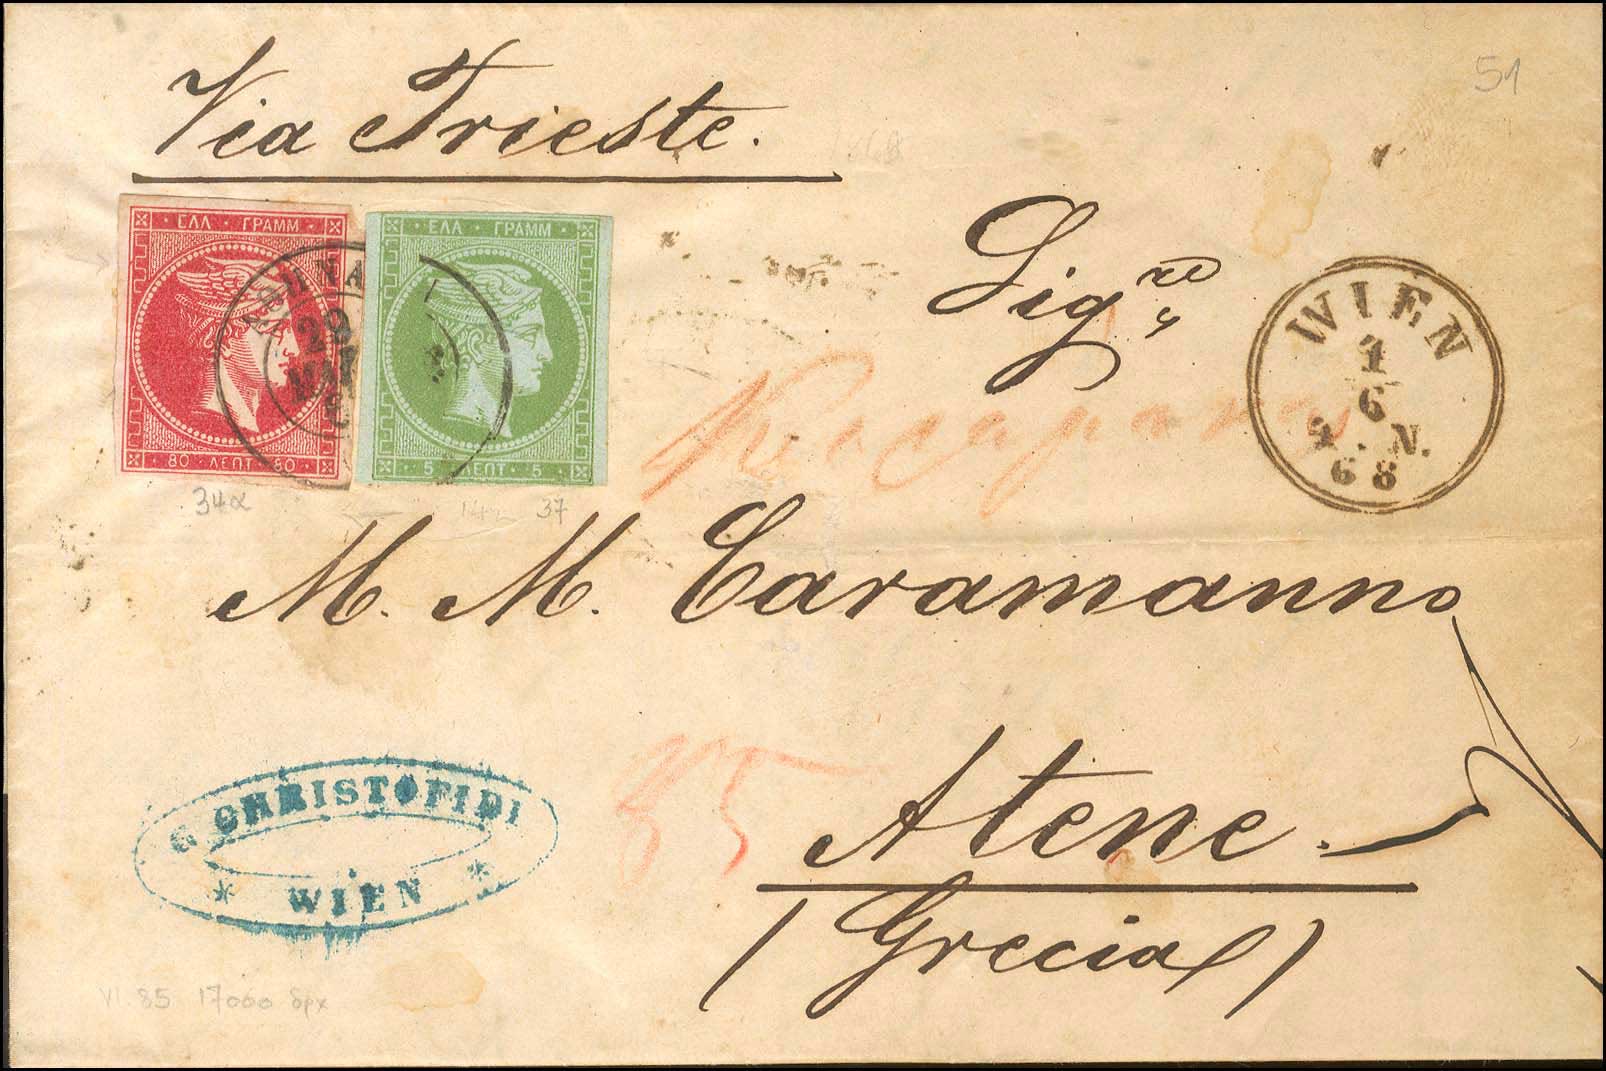 51
Via Trieste.
ΕΛΛ · ΓΡΑΜΜ
80 · ΛΕΠΤ · 80
ΕΛΛ · ΓΡΑΜΜ
5 · ΛΕΠΤ · 5
ΑΘΗΝΑΙ
20
ΜΑΙ
34α
37
Sigre
WIEN
1
6
N.
68
M. M. Caramanno
85
Atene.
(Grecia)
G CHRISTOFIDI
* WIEN *
VI. 85 17000 δρχ